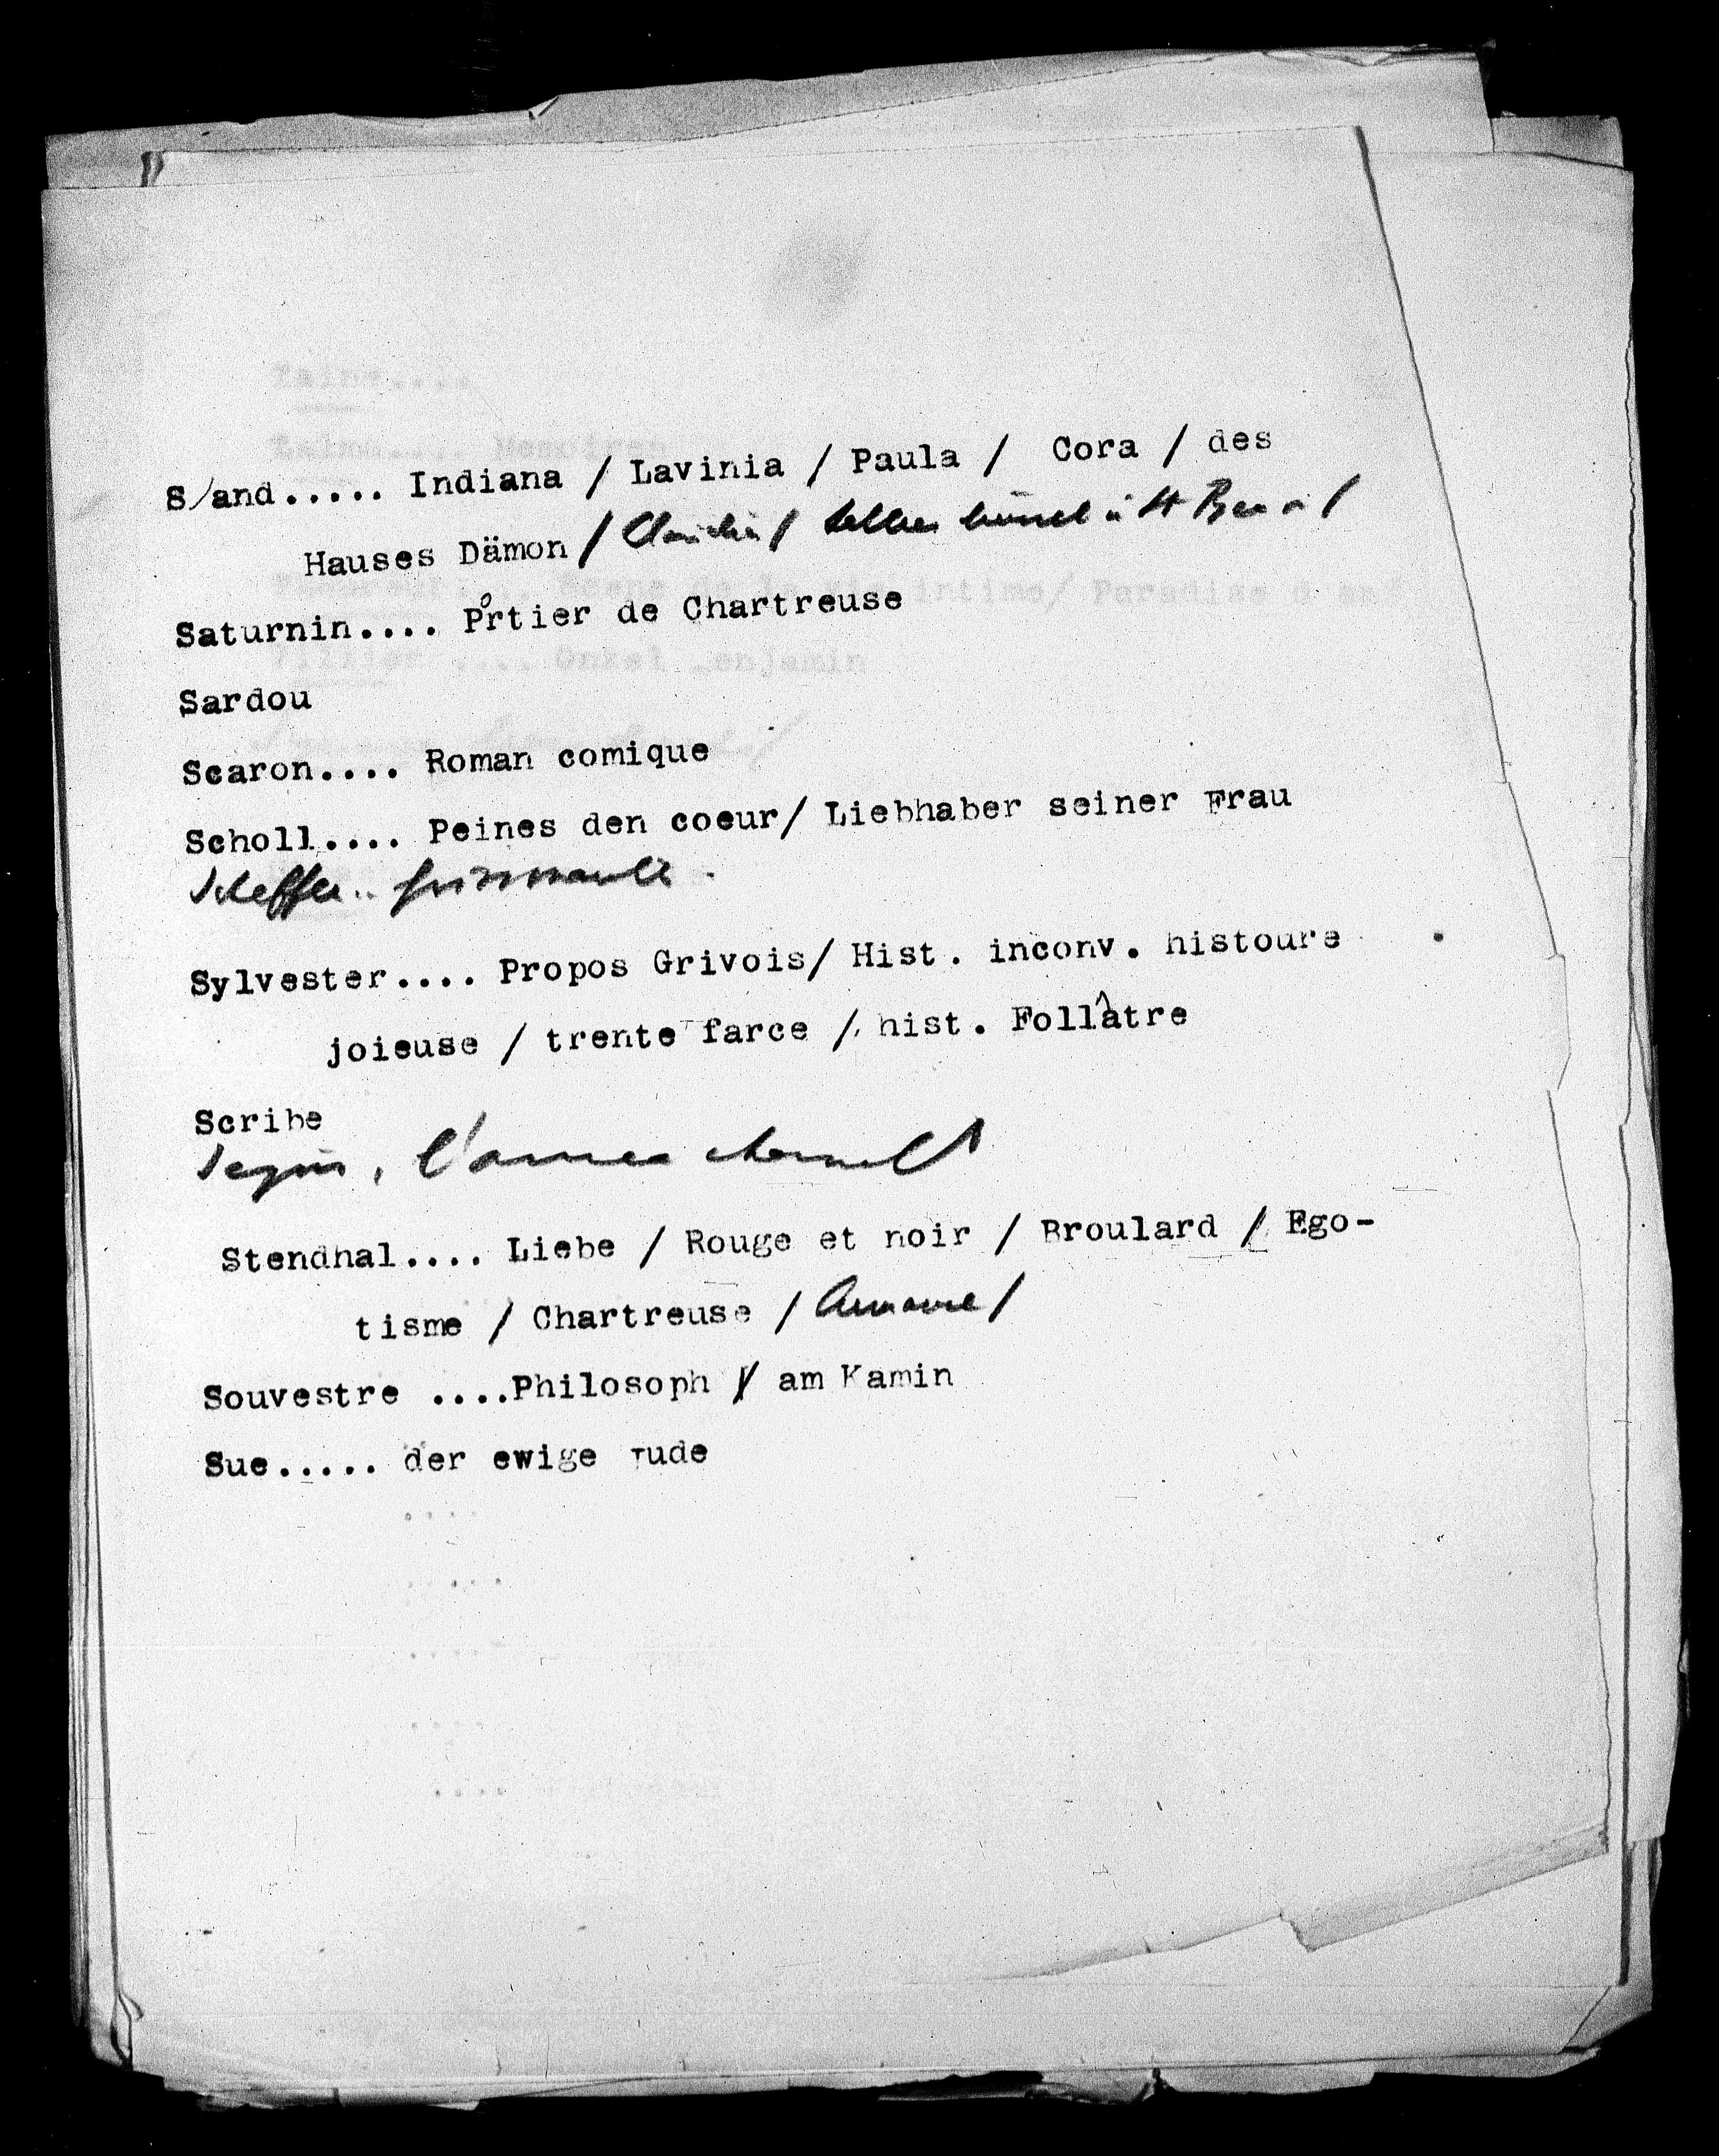 S/and..... Indiana / Lavinia / Paula / Cora / des
Hauses Dämon /
Saturnin.... Portier de Chartreuse
Sardou
Scaron.... Roman comique
Scholl.... Peines den coeur/ Liebhaber seiner Frau
Sylvester.... Propos Grivois/ Hist. inconv. histoure
joieuse / trente farce / hist. Follâtre
Scribe
Stendhal.... Liebe / Rouge et noir / Broulard / Ego-
tisme / Chartreuse / Armance /
Souvestre ....Philosoph / am Kamin
Sue..... der ewige Jude